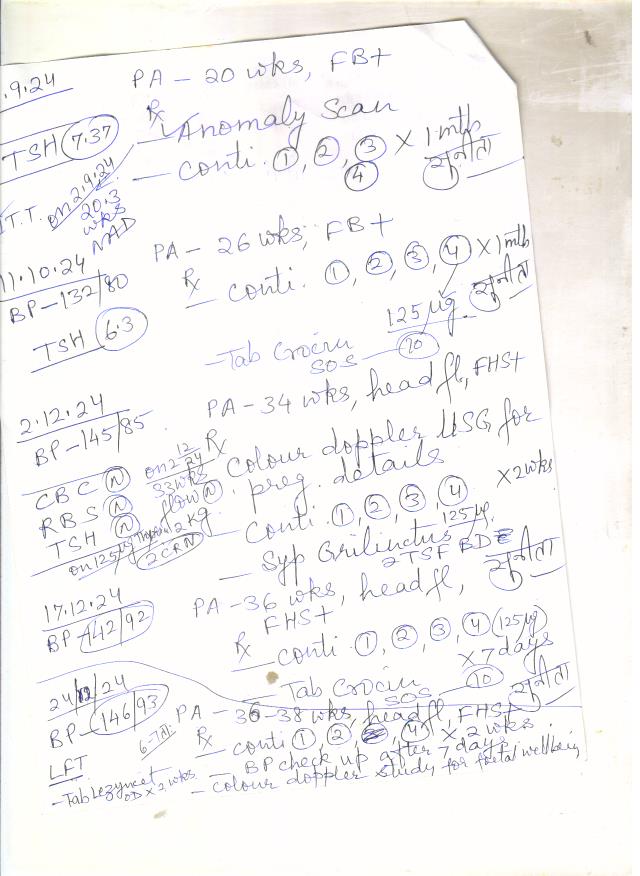 .9.24
PA - 20 wks, FB+
TSH 7.37
Rx
- Anomaly Scan
- conti. ①, ②, ③ ④ x 1 mth
सुनीता
T.T. on 2.9.24
20.3
wks
NAD
11.10.24
PA - 26 wks, FB+
BP - 132/80
Rx
- conti. ①, ②, ③, ④ x 1 mth
125 µg
सुनीता
TSH 6.3
- Tab Crocin SOS - 10
2.12.24
PA - 34 wks, head fl, FHS+
BP - 145/85
Rx
Colour doppler USG for
preg. details
on 2 12 24
33 wks
flow N
2 kg
CBC N
RBS N
TSH N
on 125 µg
2 CRN
- conti. ①, ②, ③, ④ x 2 wks
125 µg.
- Syp
2 TSF BD
सुनीता
17.12.24
PA - 36 wks, head fl,
FHS+
BP 142/92
Rx
- conti. ①, ②, ③, ④ (125 µg)
x 7 days
- Tab Crocin SOS - 10
सुनीता
24/12/24
PA - 36-38 wks, head fl, FHS+
BP - 146/93
Rx
- conti ①, ②, ④ x 2 wks.
LFT
- BP check up after 7 days
- Tab
OD x 2 wks
- colour doppler study for foetal wellbeing